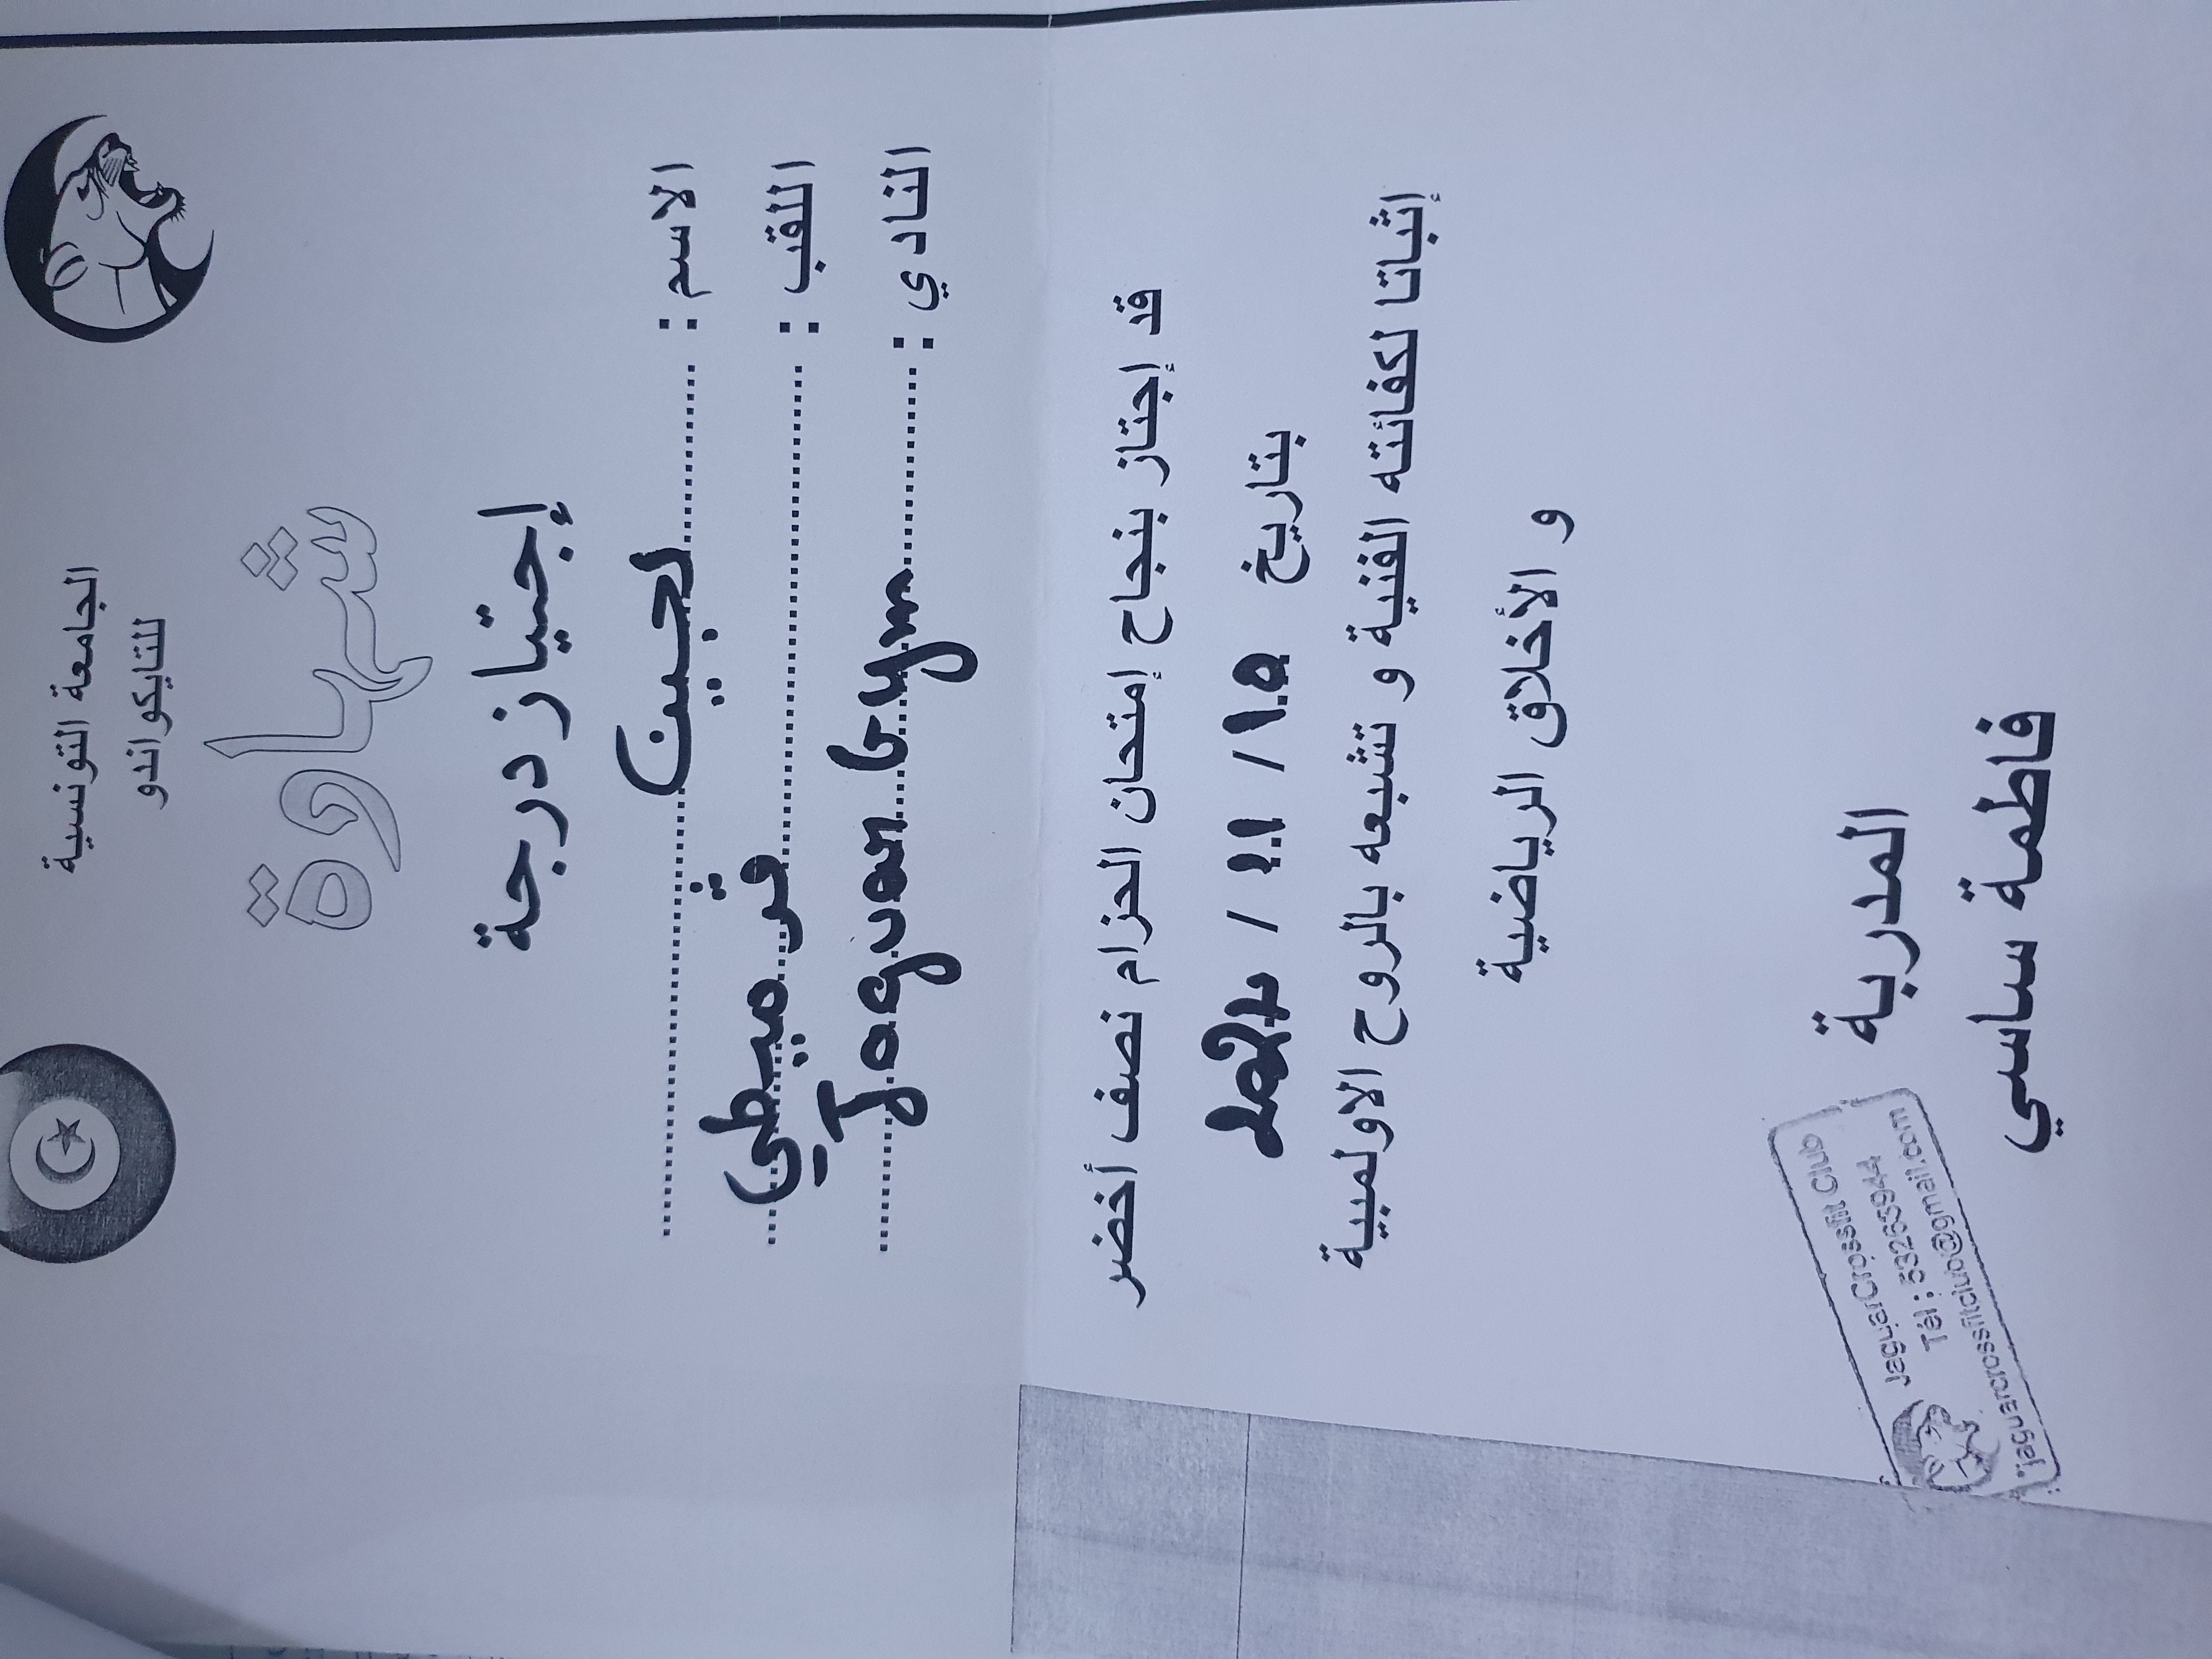 الجامعة التونسية
للتايكواندو
شهادة
إجتياز درجة
الاسم : لجين
اللقب : قرميطي
النادي : Jaguar Gym
قد إجتاز بنجاح إمتحان الحزام نصف أخضر
بتاريخ
إثباتا لكفائته الفنية و تشبعه بالروح الاولمبية
و الأخلاق الرياضية
المدربة
فاطمة ساسي
JaguarCrossfit Club
Tél : 53265944
jaguarcrossfitclub@gmail.com